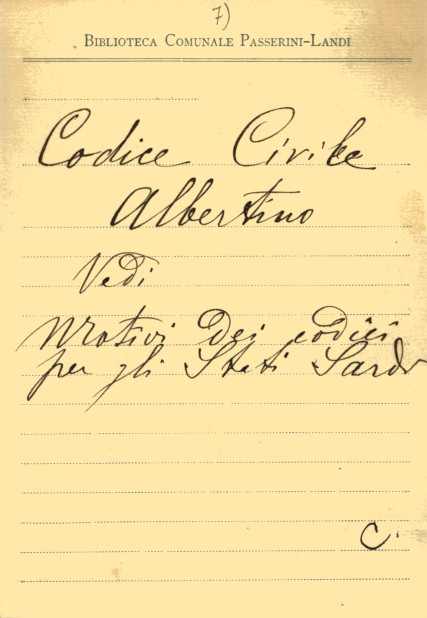 7)
BIBLIOTECA COMUNALE PASSERINI-LANDI
Codice Civile
Albertino
Vedi
Motivi dei codici
per gli Stati Sardi
C.